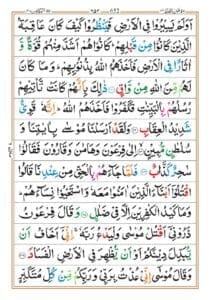 اَوَلَمْ يَسِيْرُوْا فِى الْاَرْضِ فَيَنْظُرُوْا كَيْفَ كَانَ عَاقِبَةُ
الَّذِيْنَ كَانُوْا مِنْ قَبْلِهِمْ ؕ كَانُوْا هُمْ اَشَدَّ مِنْهُمْ قُوَّةً وَّ
اٰثَارًا فِى الْاَرْضِ فَاَخَذَهُمُ اللّٰهُ بِذُنُوْبِهِمْ ؕ وَمَا كَانَ
لَهُمْ مِّنَ اللّٰهِ مِنْ وَّاقٍ ذٰلِكَ بِاَنَّهُمْ كَانَتْ تَّاْتِيْهِمْ
رُسُلُهُمْ بِالْبَيِّنٰتِ فَكَفَرُوْا فَاَخَذَهُمُ اللّٰهُ ؕ اِنَّهٗ قَوِىٌّ
شَدِيْدُ الْعِقَابِ وَلَقَدْ اَرْسَلْنَا مُوْسٰى بِاٰيٰتِنَا وَ
سُلْطٰنٍ مُّبِيْنٍ اِلٰى فِرْعَوْنَ وَهَامٰنَ وَقَارُوْنَ فَقَالُوْا
سٰحِرٌ كَذَّابٌ فَلَمَّا جَآءَهُمْ بِالْحَقِّ مِنْ عِنْدِنَا قَالُوا
اقْتُلُوْٓا اَبْنَآءَ الَّذِيْنَ اٰمَنُوْا مَعَهٗ وَاسْتَحْيُوْا نِسَآءَهُمْ
وَمَا كَيْدُ الْكٰفِرِيْنَ اِلَّا فِىْ ضَلٰلٍ وَقَالَ فِرْعَوْنُ
ذَرُوْنِىْٓ اَقْتُلْ مُوْسٰى وَلْيَدْعُ رَبَّهٗ اِنِّىْٓ اَخَافُ اَنْ
يُّبَدِّلَ دِيْنَكُمْ اَوْ اَنْ يُّظْهِرَ فِى الْاَرْضِ الْفَسَادَ
وَقَالَ مُوْسٰىٓ اِنِّىْ عُذْتُ بِرَبِّىْ وَرَبِّكُمْ مِّنْ كُلِّ مُتَكَبِّرٍ